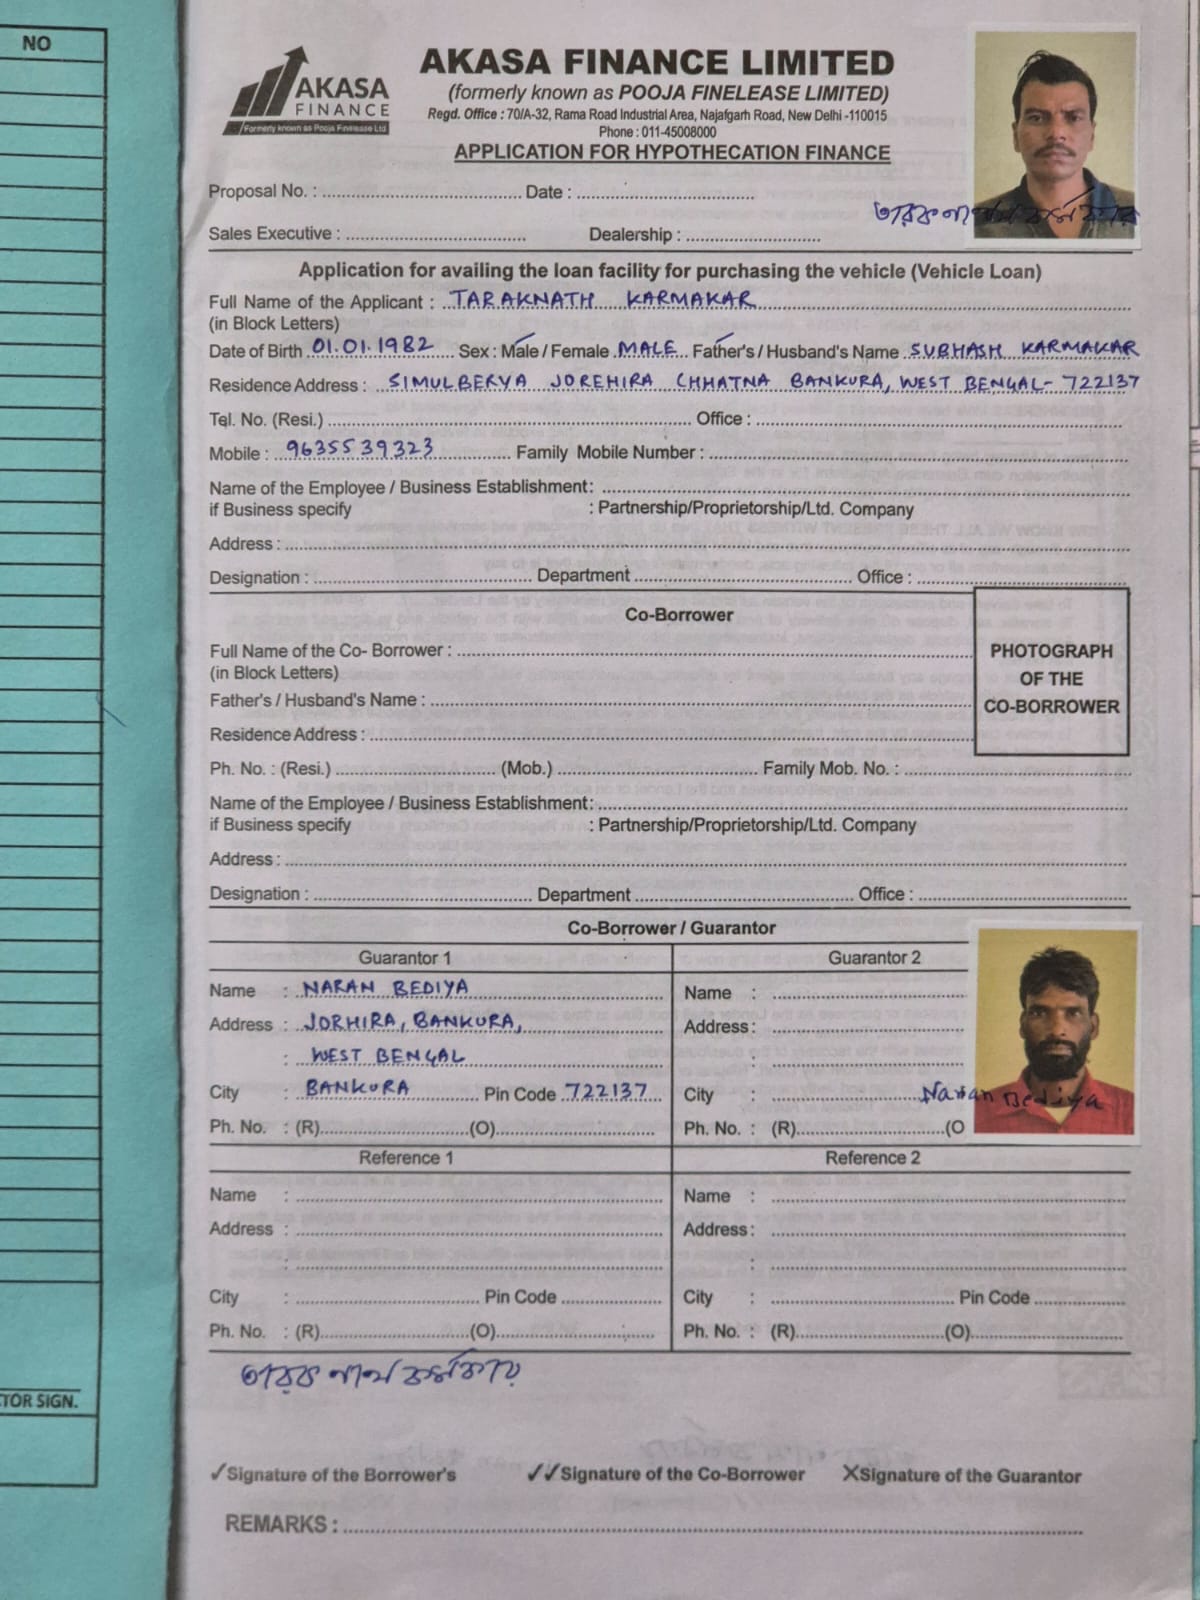 NO
AKASA FINANCE LIMITED
AKASA
FINANCE
Formerly known as Pooja Finelease Ltd.
(formerly known as POOJA FINELEASE LIMITED)
Regd. Office : 70/A-32, Rama Road Industrial Area, Najafgarh Road, New Delhi -110015
Phone : 011-45008000
APPLICATION FOR HYPOTHECATION FINANCE
Proposal No. : Date :
তারকনাথ কর্মকার
Sales Executive : Dealership :
Application for availing the loan facility for purchasing the vehicle (Vehicle Loan)
Full Name of the Applicant : TARAKNATH KARMAKAR
(in Block Letters)
Date of Birth 01.01.1982 Sex : Male / Female MALE Father's / Husband's Name SUBHASH KARMAKAR
Residence Address : SIMULBERYA JOREHIRA CHHATNA BANKURA, WEST BENGAL- 722137
Tel. No. (Resi.) Office :
Mobile : 9635539323 Family Mobile Number :
Name of the Employee / Business Establishment:
if Business specify : Partnership/Proprietorship/Ltd. Company
Address :
Designation : Department Office :
Co-Borrower
Full Name of the Co- Borrower :
(in Block Letters)
PHOTOGRAPH
OF THE
CO-BORROWER
Father's / Husband's Name :
Residence Address :
Ph. No. : (Resi.) (Mob.) Family Mob. No. :
Name of the Employee / Business Establishment:
if Business specify : Partnership/Proprietorship/Ltd. Company
Address :
Designation : Department Office :
Co-Borrower / Guarantor
Guarantor 1 Guarantor 2
Name : NARAN BEDIYA Name :
Address : JORHIRA, BANKURA, Address :
: WEST BENGAL :
City : BANKURA Pin Code 722137 City : Naran Bediya
Ph. No. : (R) (O) Ph. No. : (R) (O
Reference 1 Reference 2
Name : Name :
Address : Address :
: :
City : Pin Code City : Pin Code
Ph. No. : (R) (O) Ph. No. : (R) (O)
তারকনাথ কর্মকার
TOR SIGN.
✓Signature of the Borrower's ✓✓Signature of the Co-Borrower XSignature of the Guarantor
REMARKS :